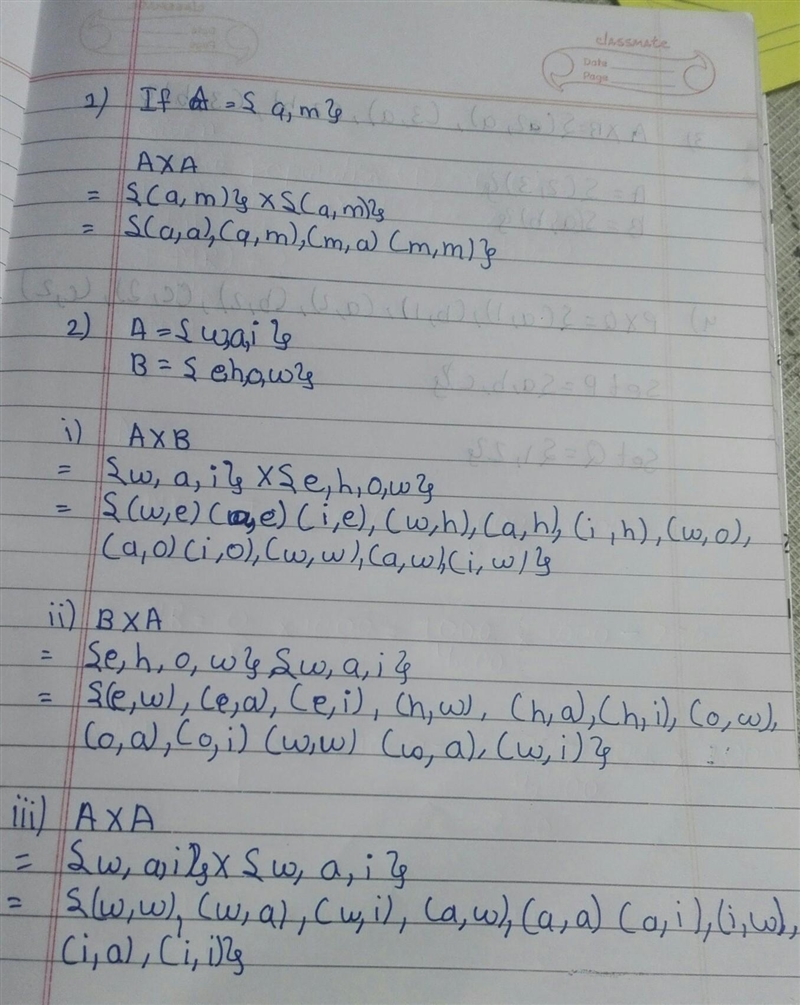 classmate
Date
Page
1) If A = {a, m}
A X A
= {(a, m)} X {(a, m)}
= {(a, a), (a, m), (m, a) (m, m)}
2) A = {w,a,i}
B = {eh,o,w}
i) A X B
= {w, a, i} X {e, h, o, w}
= {(w, e) (a, e) (i, e), (w, h), (a, h), (i, h), (w, o),
(a, o) (i, o), (w, w), (a, w), (i, w)}
ii) B X A
= {e, h, o, w}, {w, a, i}
= {(e, w), (e, a), (e, i), (h, w), (h, a), (h, i), (o, w),
(o, a), (o, i) (w, w) (w, a), (w, i)}
iii) A X A
= {w, a, i} X {w, a, i}
= {(w, w), (w, a), (w, i), (a, w), (a, a) (a, i), (i, w),
(i, a), (i, i)}